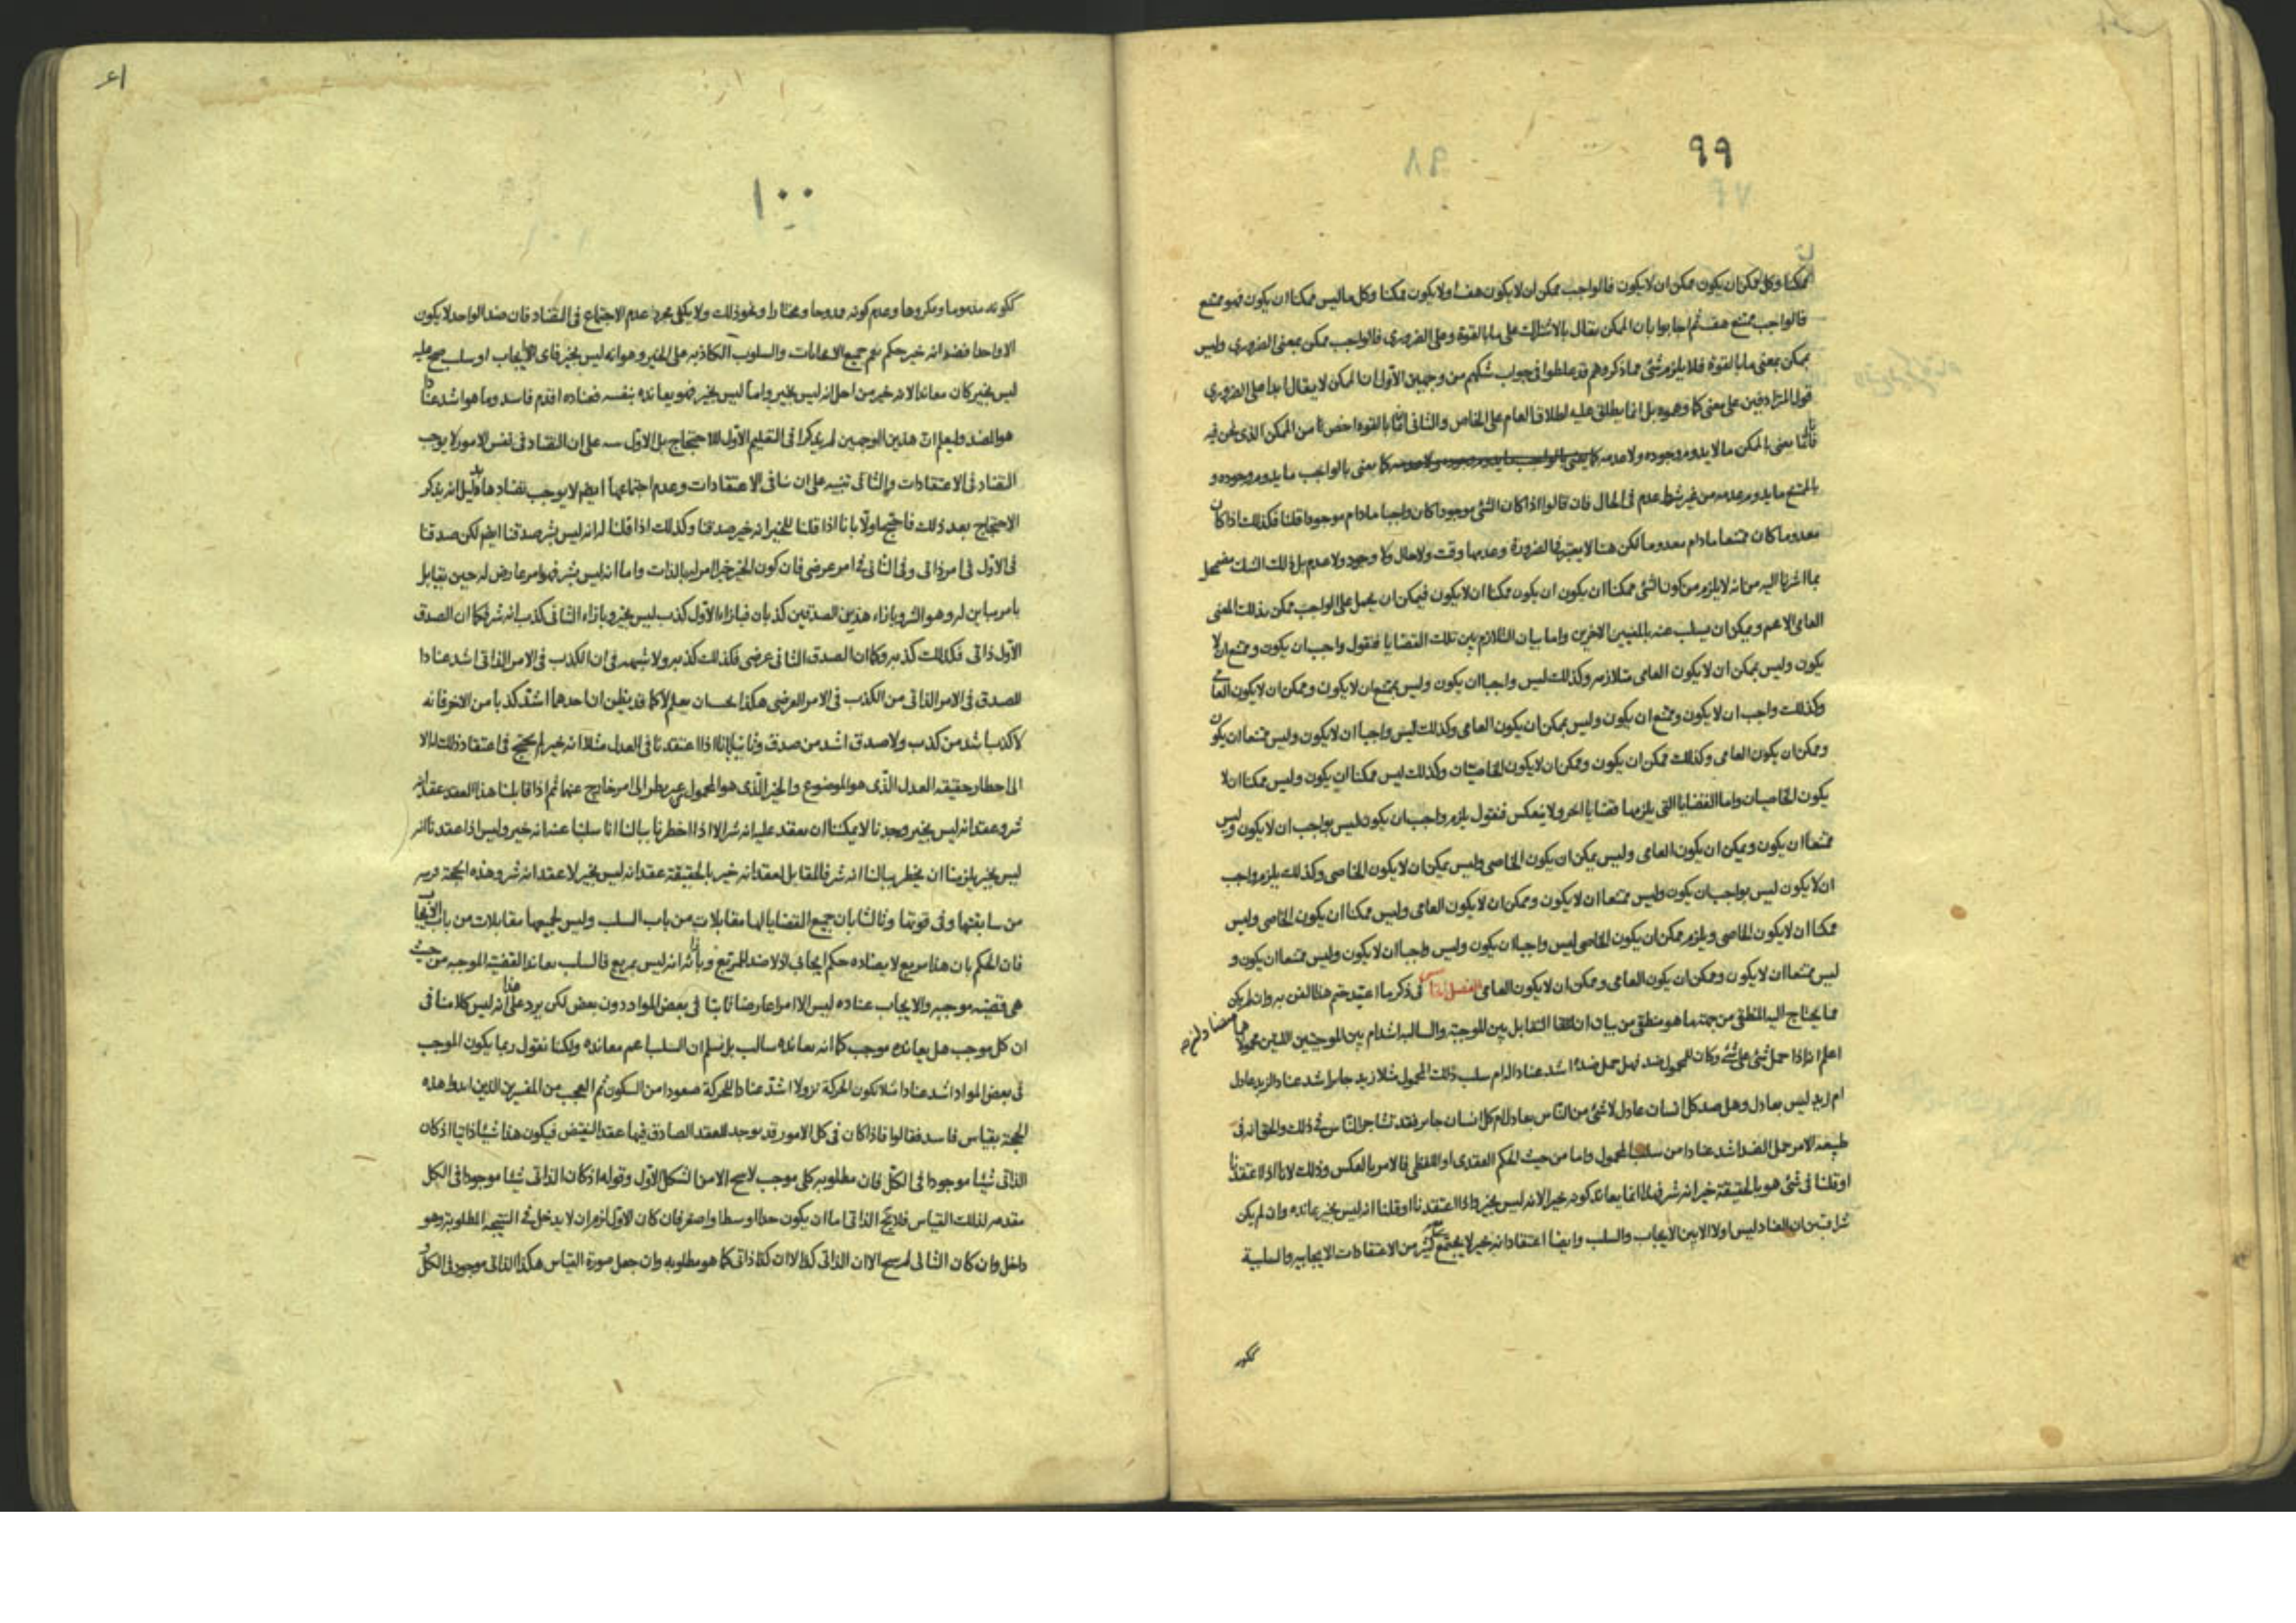 ٩٩
ممكنا وكل ممكن ان يكون ممكن ان لا يكون فالواجب ممكن ان لا يكون هف او لا يكون ممكنا وكل ما ليس ممكنا ان يكون فهو ممتنع
فالواجب ممتنع هف ثم اجابوا بان الممكن يقال بالاشتراك على ما بالقوة وعلى الضروري فالواجب ممكن بمعنى الضروري وليس
بممكن بمعنى ما بالقوة فلا يلزم شئ مما ذكر وهم قد غلطوا في جواب شكهم من وجهين الاول ان الممكن لا يقال ابدا على الضروري
قول المترادفين على معنى كما وهموه بل انما يطلق عليه اطلاق العام على الخاص والثاني ان ما بالقوة اخص من الممكن الذي نحن فيه
فانا نعنى بالممكن ما لا يدوم وجوده ولا عدمه كما نعنى بالواجب ما يدوم وجوده و
بالممتنع ما يدوم عدمه من غير شرط عدم في الحال فان قالوا اذا كان الشئ موجودا كان واجبا ما دام موجودا قلنا فكذلك اذا كان
معدوما كان ممتنعا ما دام معدوما لكن هنا لا يعتبر في الضرورة وعدمها وقت ولا حال ولا وجود ولا عدم بل ذلك الشك مضمحل
بما اشرنا اليه من انه لا يلزم من كون الشئ ممكنا ان يكون ان يكون ممكنا ان لا يكون فيمكن ان يحمل على الواجب ممكن بذلك المعنى
العامي الاعم ويمكن ان يسلب عنه بالمعنيين الاخرين واما بيان التلازم بين تلك القضايا فنقول واجب ان يكون وممتنع ان لا
يكون وليس بممكن ان لا يكون العامي متلازمه وكذلك ليس واجبا ان يكون وليس بممتنع ان لا يكون وممكن ان لا يكون العامي
وكذلك واجب ان لا يكون وممتنع ان يكون وليس بممكن ان يكون العامي وكذلك ليس واجبا ان لا يكون وليس ممتنعا ان يكون
وممكن ان يكون العامي وكذلك ممكن ان يكون وممكن ان لا يكون الخاصيتان وكذلك ليس ممكنا ان يكون وليس ممكنا ان لا
يكون الخاصيان واما القضايا التي يلزمها قضايا اخر ولا ينعكس فنقول يلزم واجب ان يكون ليس بواجب ان لا يكون وليس
ممتنعا ان يكون ويمكن ان يكون العامي وليس يمكن ان يكون الخاصي وليس يمكن ان لا يكون الخاصي وكذلك يلزم واجب
ان لا يكون ليس بواجب ان يكون وليس ممتنعا ان لا يكون وممكن ان لا يكون العامي وليس ممكنا ان يكون الخاصي وليس
ممكنا ان لا يكون الخاصي ويلزم ممكن ان يكون الخاصي ليس واجبا ان يكون وليس واجبا ان لا يكون وليس ممتنعا ان يكون و
ليس ممتنعا ان لا يكون وممكن ان يكون العامي وممكن ان لا يكون العامي الفصل في ذكر ما اعتيد ختم هذا الفن به وان لم يكن
مما يحتاج اليه المنطقي من جهة ما هو منطقي من بيان ان التقابل بين الموجبة والسالبة اشد ام بين الموجبتين اللتين محمولاهما متضادان
اعلم انه اذا حمل شئ على شئ وكان للمحمول ضد فهل حمل ضده اشد عنادا له ام سلب ذلك المحمول مثلا زيد جاير اشد عنادا لزيد عادل
ام زيد ليس بعادل وهل ضد كل انسان عادل لا شئ من الناس بعادل ام كل انسان جاير فقد تشاجر الناس في ذلك والحق انه في
طبيعة الامر حمل الضد اشد عنادا من سلب المحمول واما من حيث الحكم العقدي او اللفظي فالامر بالعكس وذلك لانا اذا اعتقدنا
او قلنا في شئ هو بالحقيقة خير انه شر فهذا انما يعاند كونه خيرا لانه ليس بخير واذا اعتقدنا او قلنا انه ليس بخير عانده وان لم يكن
شرا فتبين ان العناد ليس اولا الا بين الايجاب والسلب وايضا اعتقاد انه خير لا يجتمع معه كثير من الاعتقادات الايجابيه والسلبية
ككونه
١٠٠
ككونه مذموما ومكروها وعدم كونه ممدوحا ومختارا ونحو ذلك ولا يكفي مجرد عدم الاجتماع في التضاد فان ضد الواحد لا يكون
الا واحدا فضد انه خير حكم يعم جميع الايجابات والسلوب الكاذبه على الخير وهو انه ليس بخير فاى الايجاب او سلب صح عليه
ليس بخير كان معاندا لانه خير من اجل انه ليس بخير واما ليس بخير فهو يعانده بنفسه فعناده اقدم فاسد وما هو اشد عنادا
هو الضد وليعلم ان هذين الوجهين لم يذكرا في التعليم الاول للاحتجاج بل الاول على ان التضاد في نفس الامور لا يوجب
التضاد في الاعتقادات والثاني تنبيه على ان تنافي الاعتقادات وعدم اجتماعها ايضا لا يوجب تضادها بدليل انه يذكر
الاحتجاج بعد ذلك فاحتج اولا بانا اذا قلنا للخير انه خير صدقنا وكذلك اذا قلنا له انه ليس بشر صدقنا ايضا لكن صدقنا
في الاول في امر ذاتي وفي الثاني في امر عرضي فان كون الخير خيرا امر له بالذات واما انه ليس بشر فهو امر عارض له حين يقابل
بامر مباين له وهو الشر وبازاء هذين الصدقين كذبان فبازاء الاول كذب ليس بخير وبازاء الثاني كذب انه شر فكما ان الصدق
الاول ذاتي فكذلك كذبه وكما ان الصدق الثاني عرضي فكذلك كذبه ولا شبهه في ان الكذب في الامر الذاتي اشد عنادا
للصدق في الامر الذاتي من الكذب في الامر العرضي هكذا يجب ان يعلم لا كما قد يظن ان احدهما اشد كذبا من الاخر فانه
لا كذب اشد من كذب ولا صدق اشد من صدق وثانيا بانا اذا اعتقدنا في العدل مثلا انه خير لم يحتج في اعتقاد ذلك الا
الى اخطار حقيقه العدل الذي هو الموضوع والخير الذي هو المحمول من غير نظر الى امر خارج عنها ثم اذا قابلنا هذا العقد عقد انه
شر وعقد انه ليس بخير وجدنا لا يمكننا ان نعقد عليه انه شر الا اذا اخطرنا ببالنا انا سلبنا عنه انه خير وليس اذا عقدنا انه
ليس بخير يلزمنا ان يخطر ببالنا انه شر فالمقابل لعقد انه خير بالحقيقة عقد انه ليس بخير لا عقد انه شر وهذه الحجة قريبه
من سابقتها وفي قوتها وثالثا بان جميع القضايا لها مقابلات من باب السلب وليس لجميعها مقابلات من باب الايجاب
فان الحكم بان هذا مربع لا يضاده حكم ايجابي اذ لا ضد للمربع ويقابله انه ليس بمربع فالسلب يعاند القضية الموجبه من حيث
هي قضيه موجبه والايجاب عناده ليس الا امرا عارضا ثابتا في بعض المواد دون بعض لكن يرد على هذا انه ليس كلامنا في
ان كل موجب هل يعانده موجب كما انه يعانده سالب بل نسلم ان السلب اعم معانده ولكنا نقول ربما يكون الموجب
في بعض المواد اشد عنادا مثلا تكون الحركة نزولا اشد عنادا للحركة صعودا من السكون ثم العجب من المفسرين الذين ايدوا هذه
الحجة بقياس فاسد فقالوا فاذا كان في كل الامور قد يوجد للعقد الصادق فيها عقد النقيض فيكون هذا شيئا ذاتيا اذ كان
الذاتي شيئا موجودا في الكل فان مطلوبه كلى موجب لا ينتج الا من الشكل الاول وقوله اذ كان الذاتي شيئا موجودا في الكل
مقدمه لذلك القياس فلا يخ الذاتي اما ان يكون حدا اوسط او اصغر فان كان الاول لزم ان لا يدخل في النتيجة المطلوبة وهو
داخل وان كان الثاني لم ينتج الا ان الذاتي كذا لا ان كذا ذاتي كما هو مطلوبه وان جعل صورة القياس هكذا الذاتي موجود في الكل